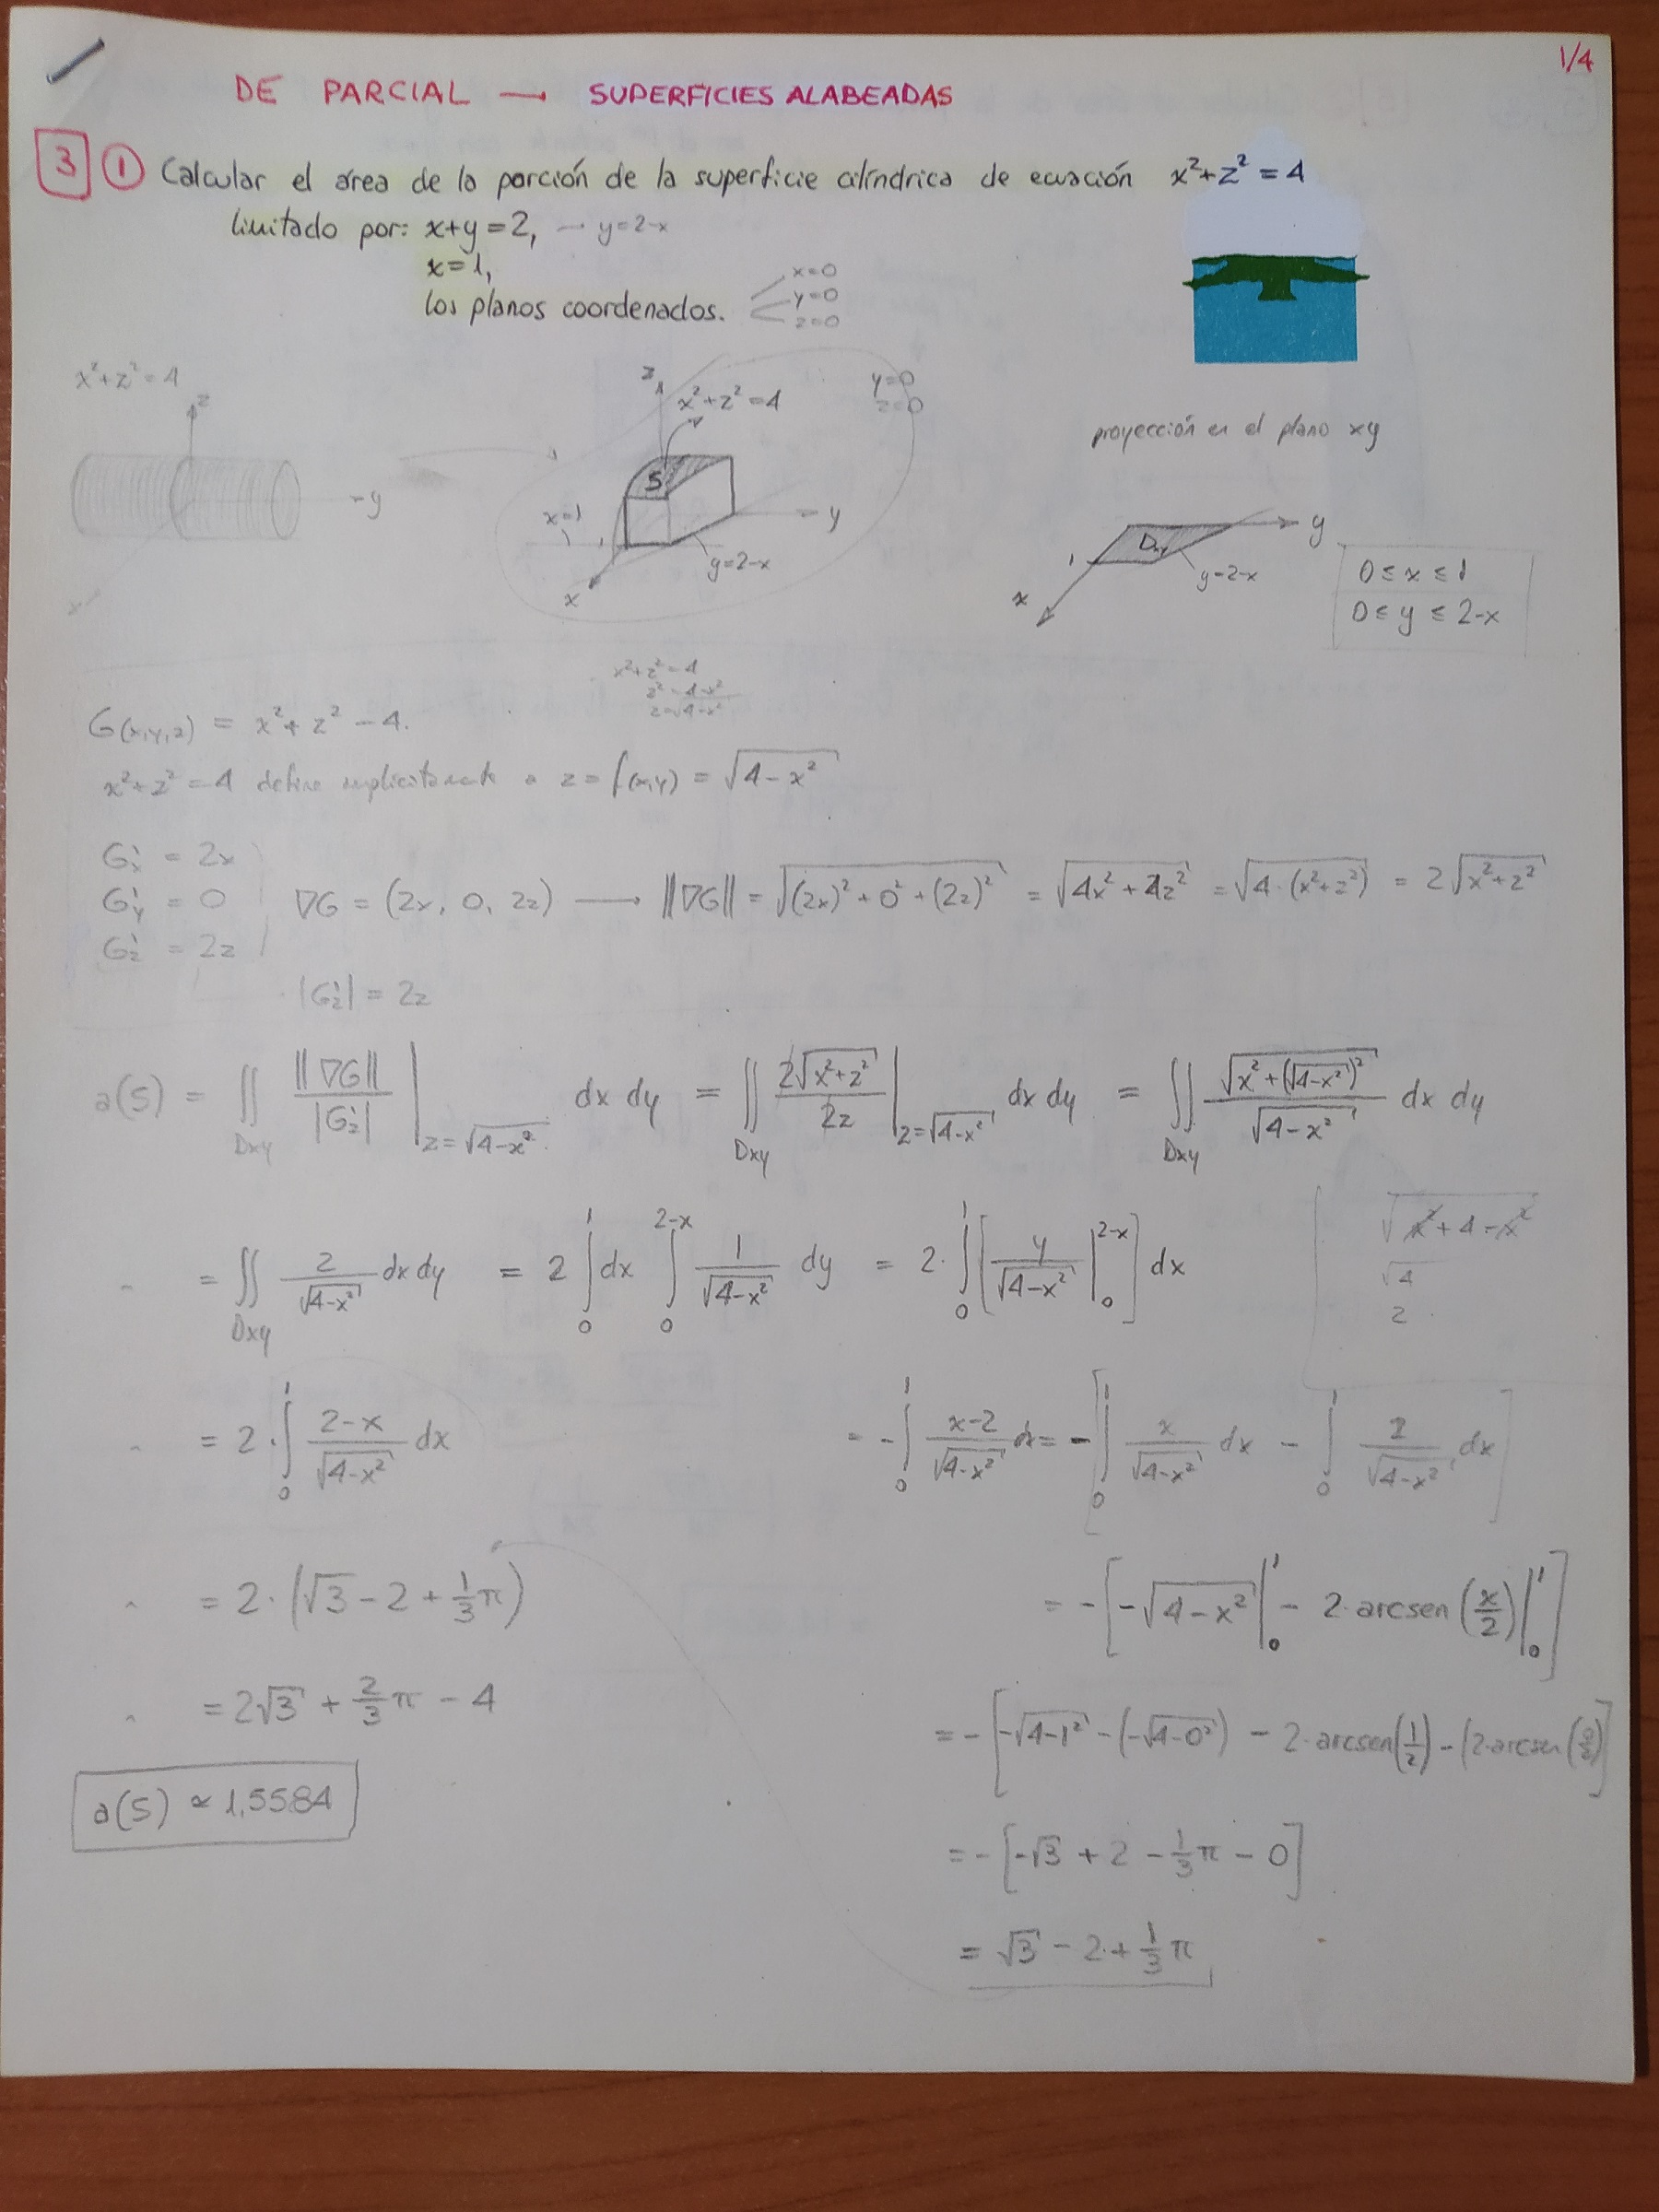 1/4
DE PARCIAL → SUPERFICIES ALABEADAS
3 ① Calcular el área de la porción de la superficie cilíndrica de ecuación x²+z² = 4
limitado por: x+y = 2, → y=2-x
x=1,
los planos coordenados. x=0
y=0
z=0
x²+z²=4
z
y
x
z
x²+z²=4
y=0
z=0
S
x=1
y
y=2-x
x
proyección en el plano xy
y
Dxy
1
y=2-x
x
0 ≤ x ≤ 1
0 ≤ y ≤ 2-x
x²+z²=4
z²=4-x²
z=√(4-x²)
G(x,y,z) = x²+z²-4.
x²+z²=4 define implícitamente a z = f(x,y) = √(4-x²)
G'x = 2x
G'y = 0
G'z = 2z
∇G = (2x, 0, 2z) → ||∇G|| = √((2x)²+0²+(2z)²) = √(4x²+4z²) = √(4·(x²+z²)) = 2√(x²+z²)
|G'z| = 2z
a(S) = ∬Dxy ||∇G||/|G'z| |z=√(4-x²) dx dy = ∬Dxy 2√(x²+z²)/2z |z=√(4-x²) dx dy = ∬Dxy √(x²+(√(4-x²))²)/√(4-x²) dx dy
√(x²+4-x²)
√4
2
= ∬Dxy 2/√(4-x²) dx dy = 2 ∫₀¹ dx ∫₀²⁻ˣ 1/√(4-x²) dy = 2·∫₀¹ [y/√(4-x²) |₀²⁻ˣ] dx
= 2·∫₀¹ (2-x)/√(4-x²) dx = -∫₀¹ (x-2)/√(4-x²) dx = -[∫₀¹ x/√(4-x²) dx - ∫₀¹ 2/√(4-x²) dx]
= 2·(√3-2+1/3π) = -[-√(4-x²) |₀¹ - 2·arcsen(x/2) |₀¹]
= 2√3 + 2/3π - 4 = -[-√(4-1²) - (-√(4-0²)) - 2·arcsen(1/2) - (2·arcsen(0/2)]
a(S) ≃ 1,5584
= -[-√3 + 2 - 1/3π - 0]
= √3 - 2 + 1/3π